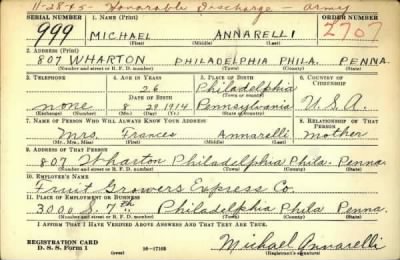 11-28-45- Honorable Discharge - Army
SERIAL NUMBER 1. NAME (Print) ORDER NUMBER
999 MICHAEL ANNARELLI 2707
(First) (Middle) (Last)
2. ADDRESS (Print)
807 WHARTON PHILADELPHIA PHILA. PENNA.
(Number and street or R. F. D. number) (Town) (County) (State)
3. TELEPHONE 4. AGE IN YEARS 5. PLACE OF BIRTH 6. COUNTRY OF CITIZENSHIP
26 Philadelphia
DATE OF BIRTH (Town or county)
none 8 29 1914 Pennsylvania U.S.A.
(Exchange) (Number) (Mo.) (Day) (Yr.) (State or country)
7. NAME OF PERSON WHO WILL ALWAYS KNOW YOUR ADDRESS 8. RELATIONSHIP OF THAT PERSON
Mrs. Frances Annarelli mother
(Mr., Mrs., Miss) (First) (Middle) (Last)
9. ADDRESS OF THAT PERSON
807 Wharton Philadelphia Phila. Penna.
(Number and street or R. F. D. number) (Town) (County) (State)
10. EMPLOYER'S NAME
Fruit Growers Express Co.
11. PLACE OF EMPLOYMENT OR BUSINESS
3000 S. 7th Philadelphia Phila Penna.
(Number and street or R. F. D. number) (Town) (County) (State)
I AFFIRM THAT I HAVE VERIFIED ABOVE ANSWERS AND THAT THEY ARE TRUE.
REGISTRATION CARD
D. S. S. Form 1 (over) 16-17105 Michael Annarelli
(Registrant's signature)